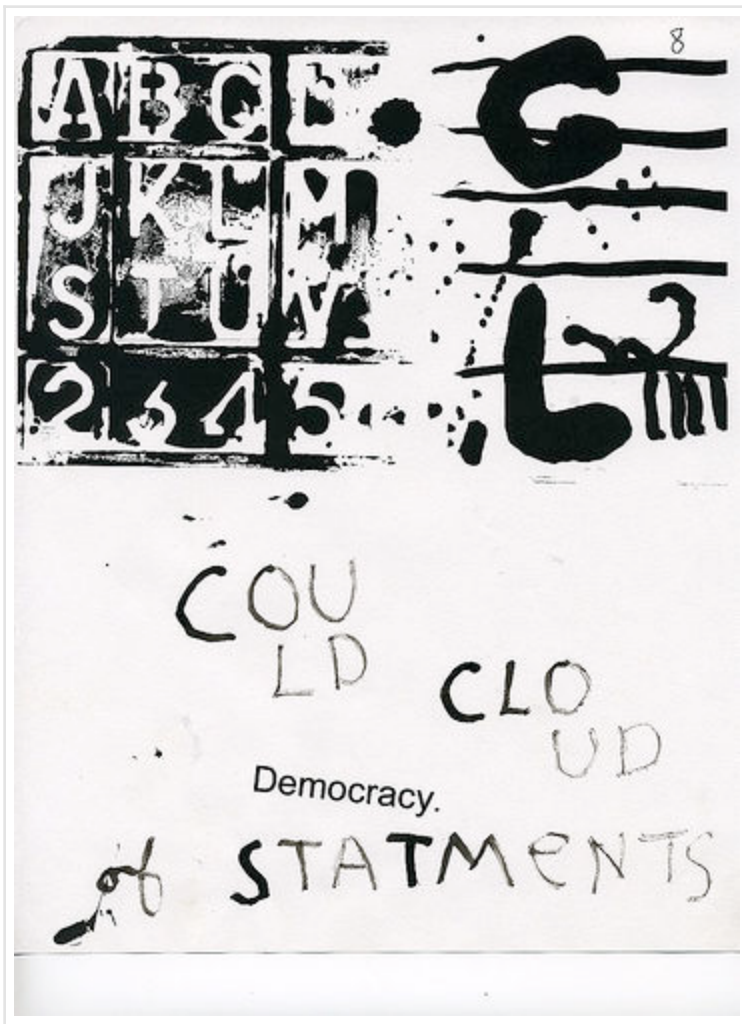 8
A B C
J K L M
S T U V
2 3 4 5
COU
LD
CLO
UD
Democracy.
of STATMENTS